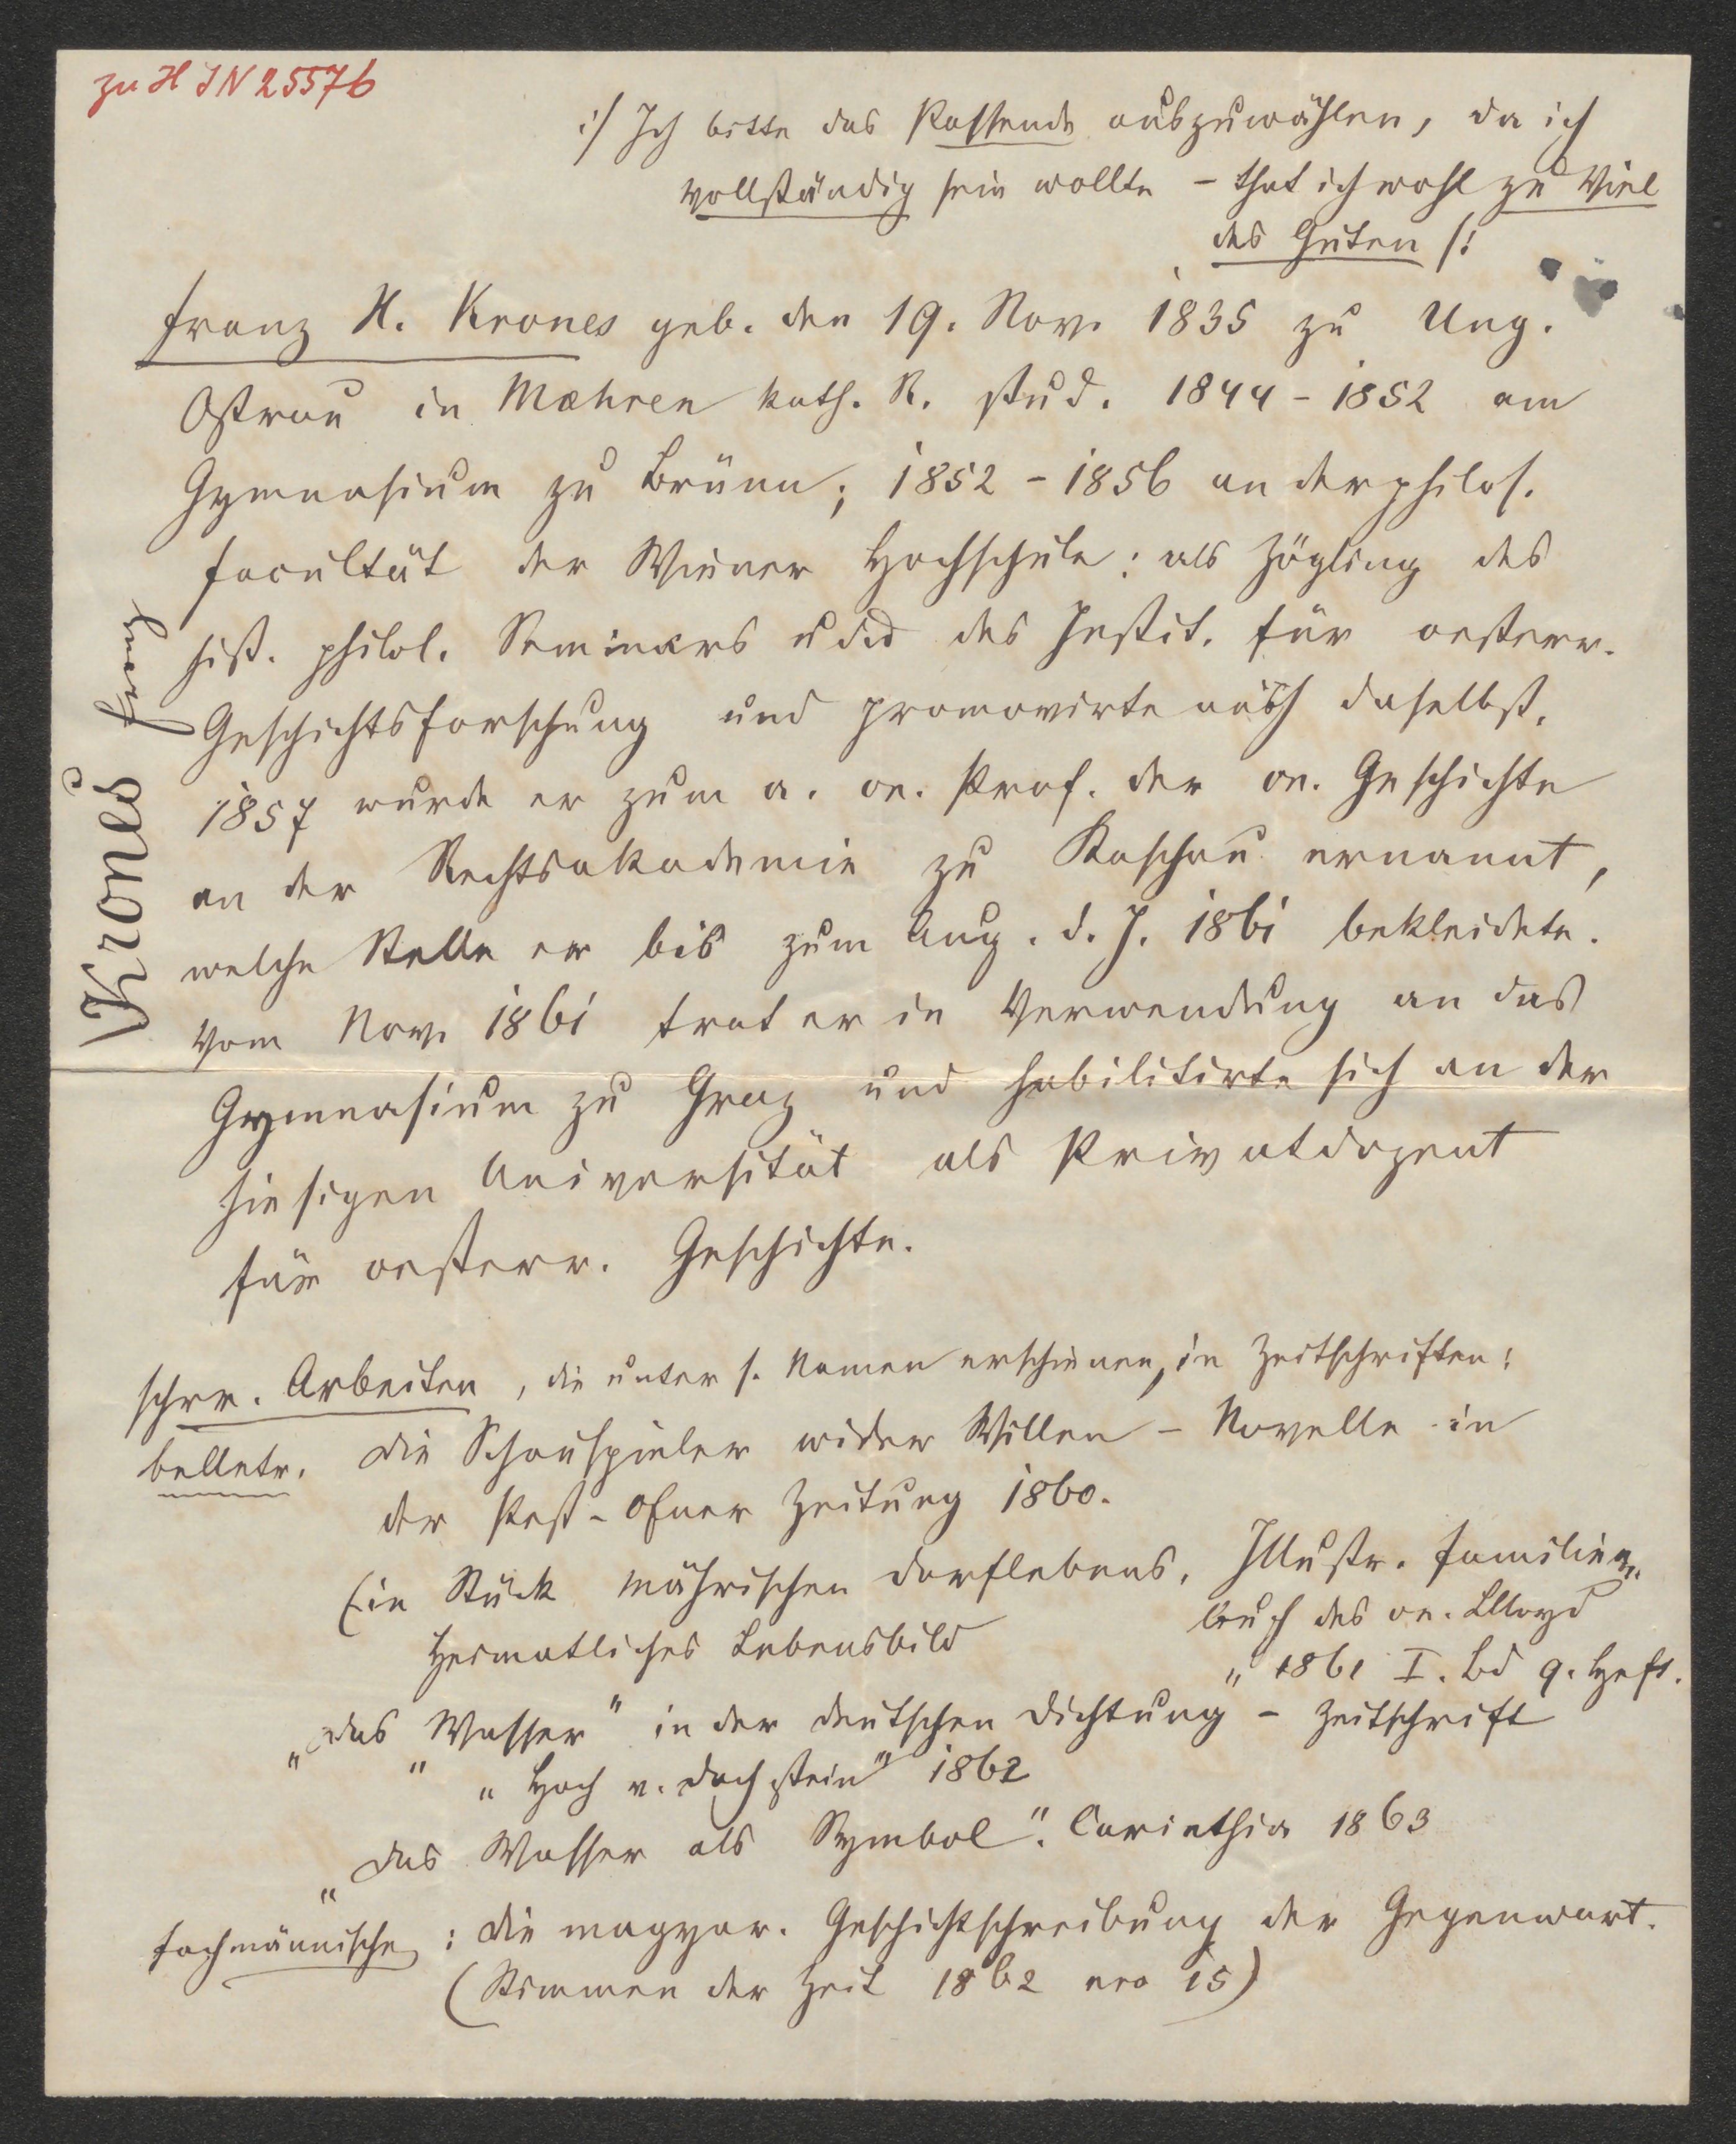 zu H IN 25576
:/ Ich bitte das Passende auszuwählen, da ich
vollständig sein wollte – that ich wohl zu Viel
des Guten /:
Franz X. Krones geb. den 19. Nov. 1835 zu Ung.
Ostrau in Mæhren kath. R. stud. 1844 – 1852 am
Gymnasium zu Brünn; 1852 – 1856 an der philos.
Facultät der Wiener Hochschule: als Zögling des
hist. philol. Seminars u des Instit. für oesterr.
Geschichtsforschung und promovirte auch daselbst.
1857 wurde er zum a. oe. Prof. der oe. Geschichte
an der Rechtsakademie zu Kaschau ernannt,
welche Stelle er bis zum Aug. d. J. 1861 bekleidete.
Vom Nov. 1861 trat er in Verwendung an das
Gymnasium zu Graz und habilitirte sich an der
hiesigen Universität als Privatdozent
für oesterr. Geschichte.
Krones Franz
schrr. Arbeiten, die unter s. Namen erschienen, in Zeitschriften:
belletr. Die Schauspieler wider Willen – Novelle in
der Pest-Ofner Zeitung 1860.
Ein Stück mährischen Dorflebens. Illustr. Familien-
buch des oe. Lloyd
Heimatliches Lebensbild
1861 I. Bd 9. Heft.
„Das „Wasser" in der deutschen Dichtung" – Zeitschrift
„Hoch v. Dachstein" 1862
„Das Wasser als Symbol". Carinthia 1863
fachmännische: Die magyar. Geschichtschreibung der Gegenwart.
(Stimmen der Zeit 1862 nro 15)